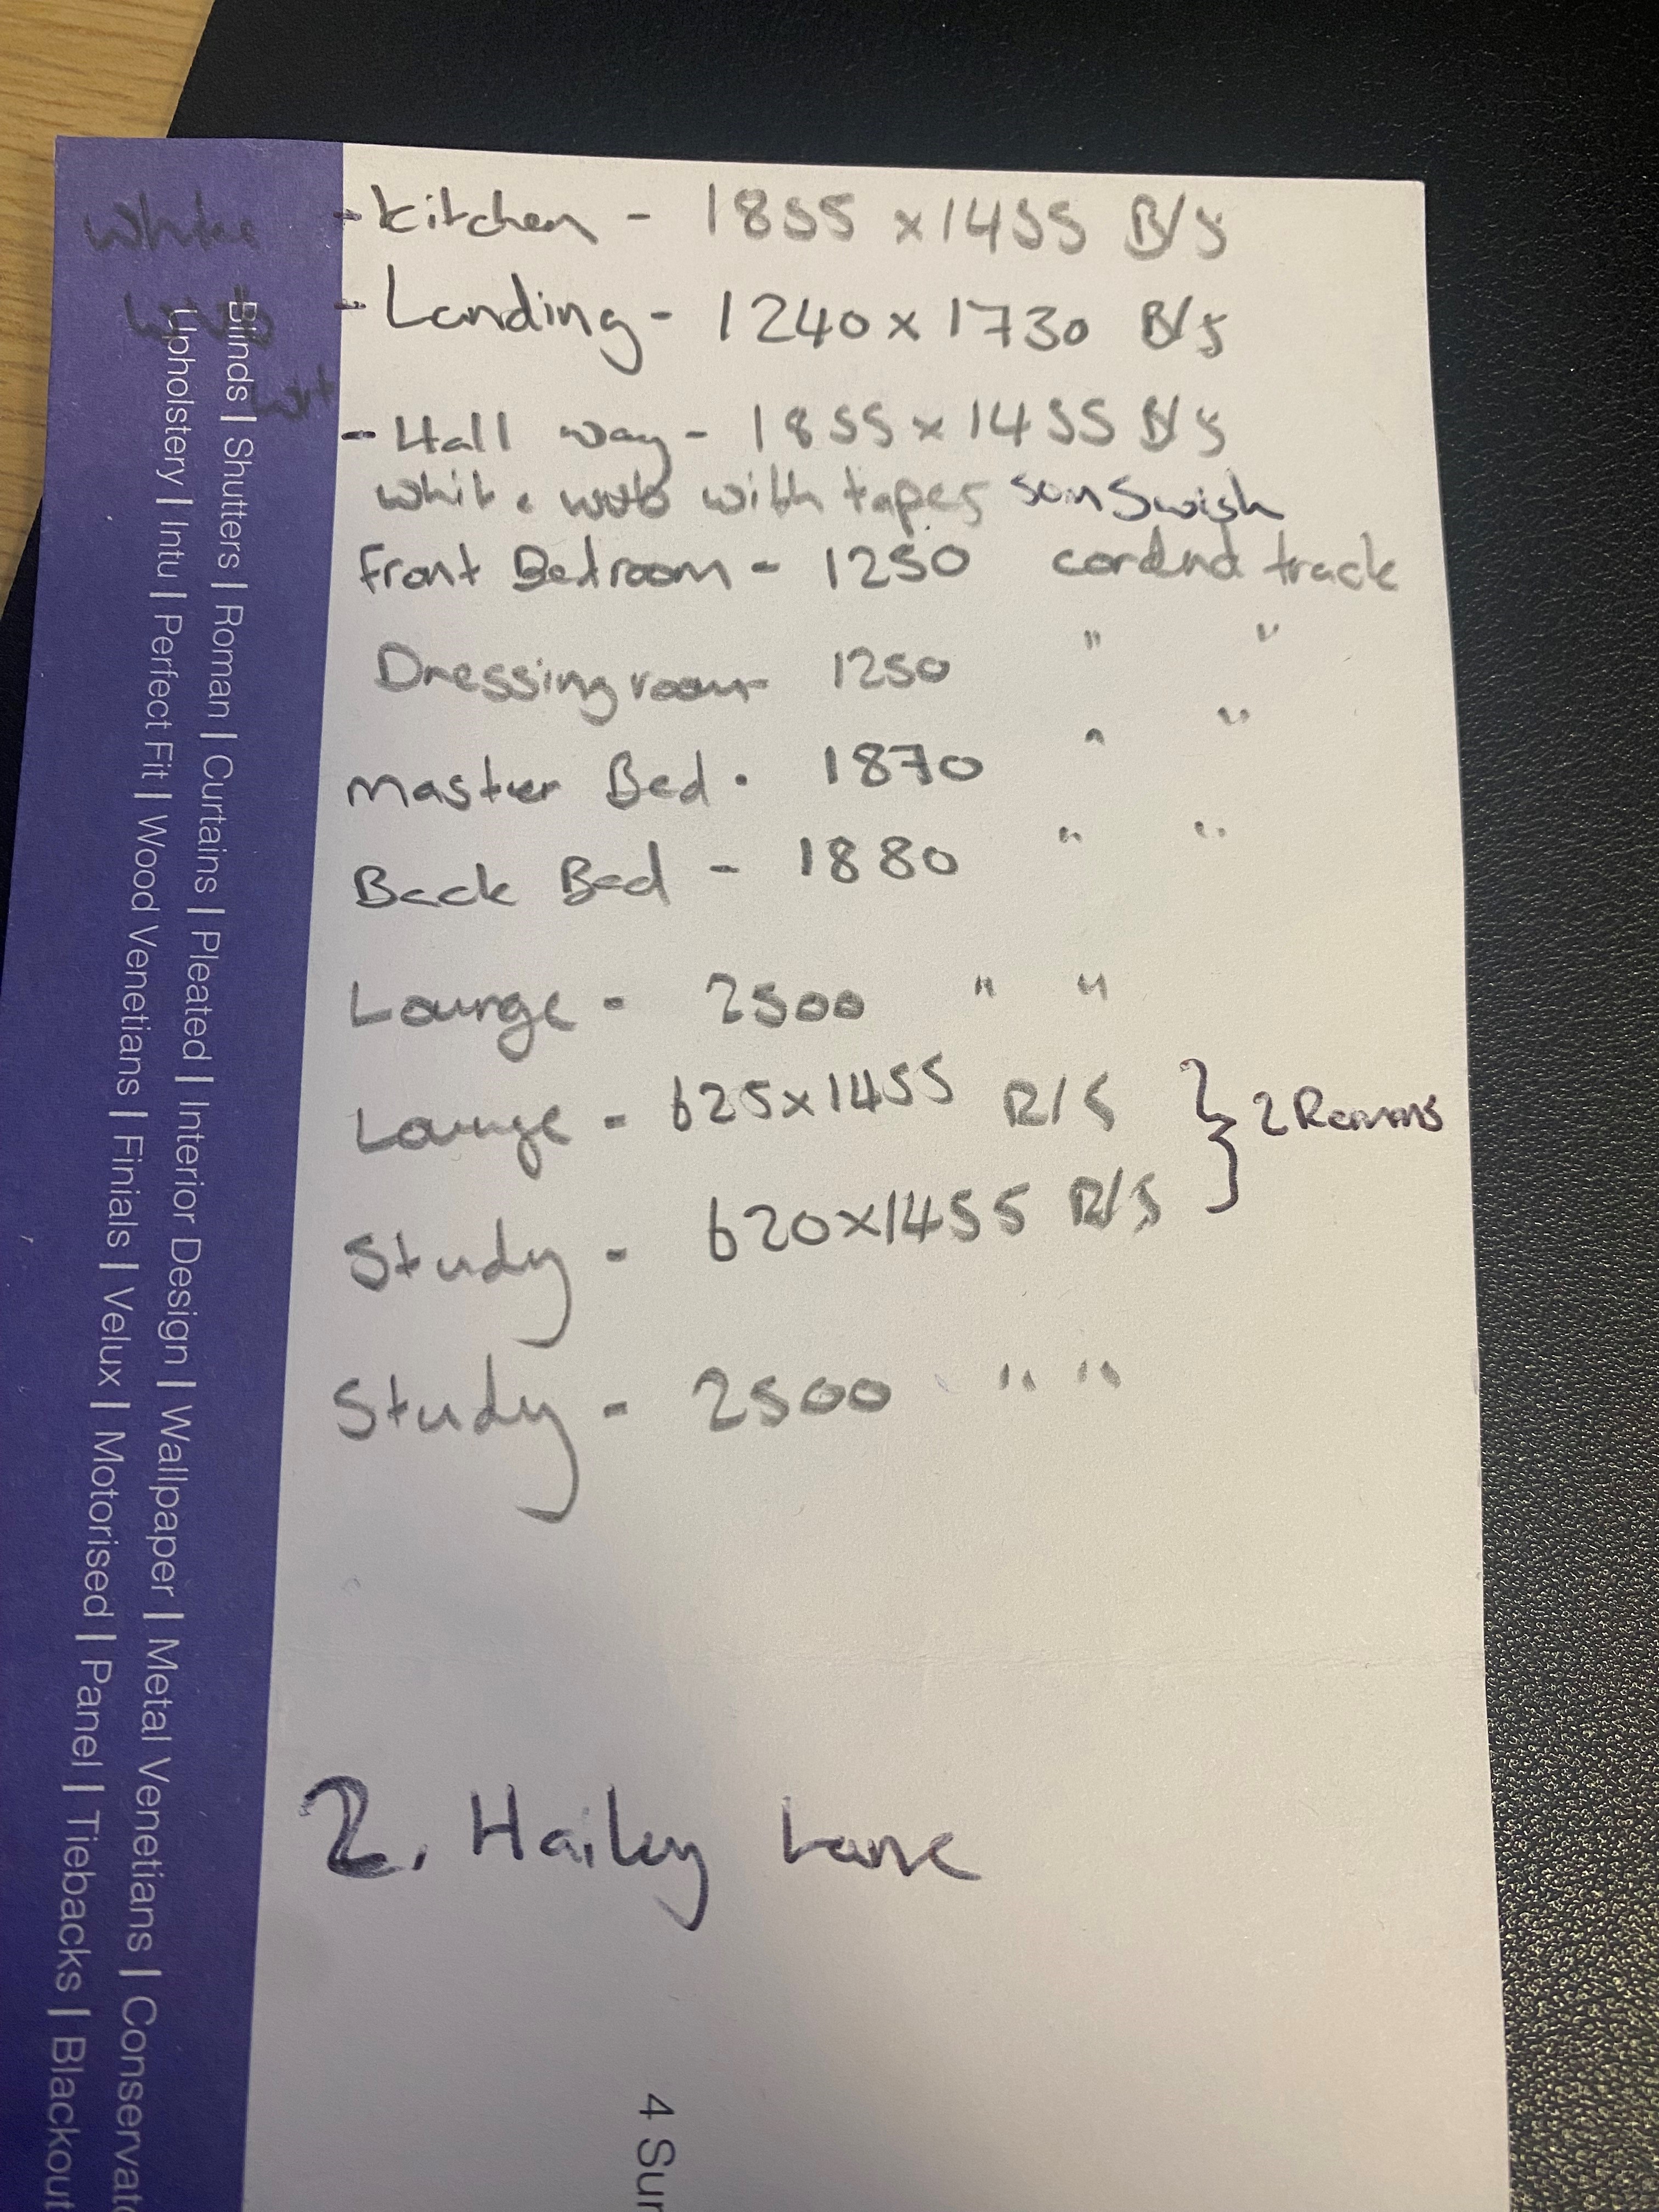 - Kitchen - 1855 x 1455 B/S
- Landing - 1240 x 1730 B/S
- Hall way - 1855 x 1455 B/S
white with tapes Swish
Front Bedroom - 1250 track
Dressing room - 1250 " "
Master Bed . 1870 " "
Back Bed - 1880 " "
Lounge - 2500 " "
Lounge - 625x1455 R/S } 2
Study - 620x1455 R/S
Study - 2500 " "
2. Hailey Lane
White
Blinds | Shutters | Roman | Curtains | Pleated | Interior Design | Wallpaper | Metal Venetians |
Upholstery | Intu | Perfect Fit | Wood Venetians | Finials | Velux | Motorised | Panel | Tiebacks | Blackout
4